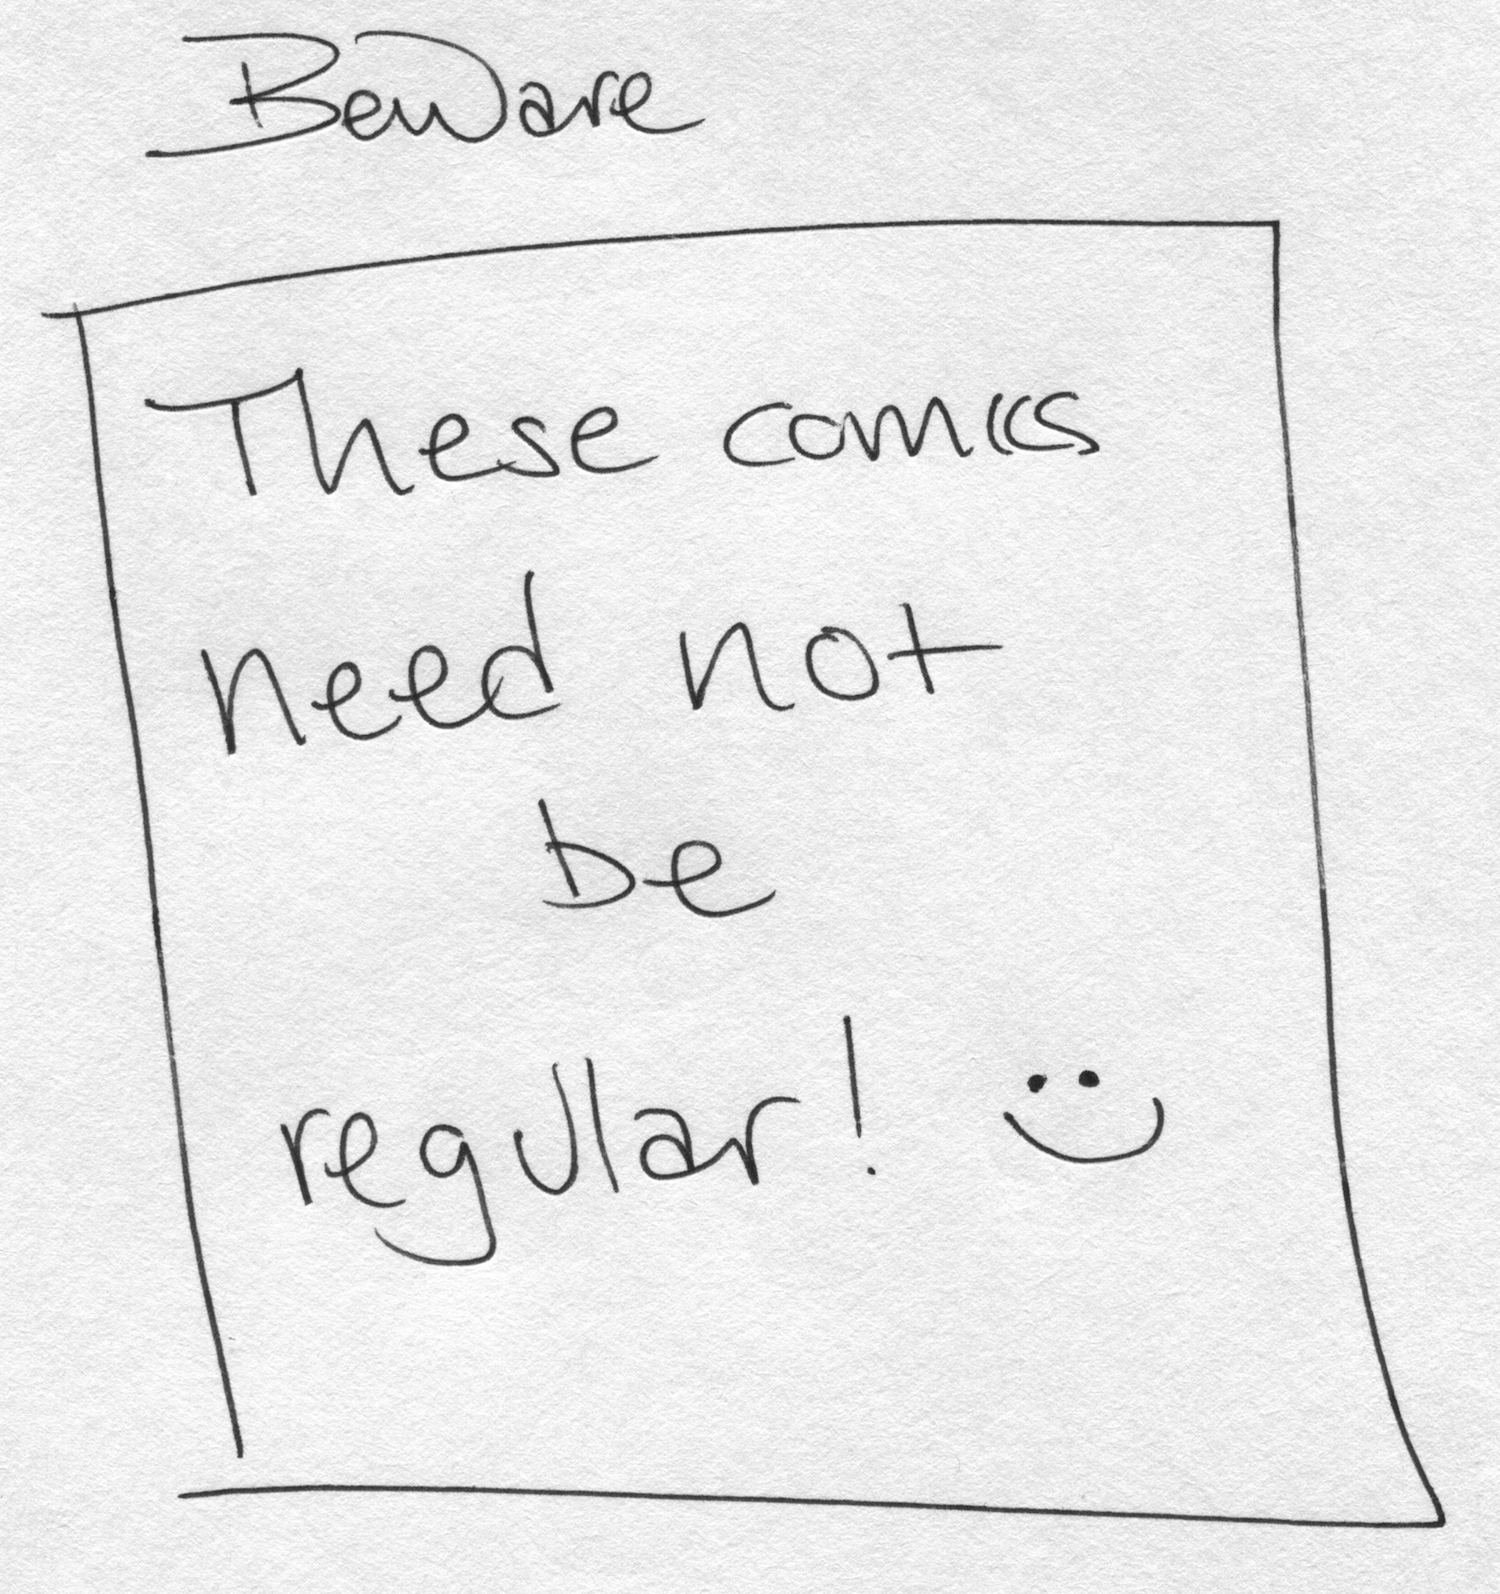 Beware
These comics
need not
be
regular! :)